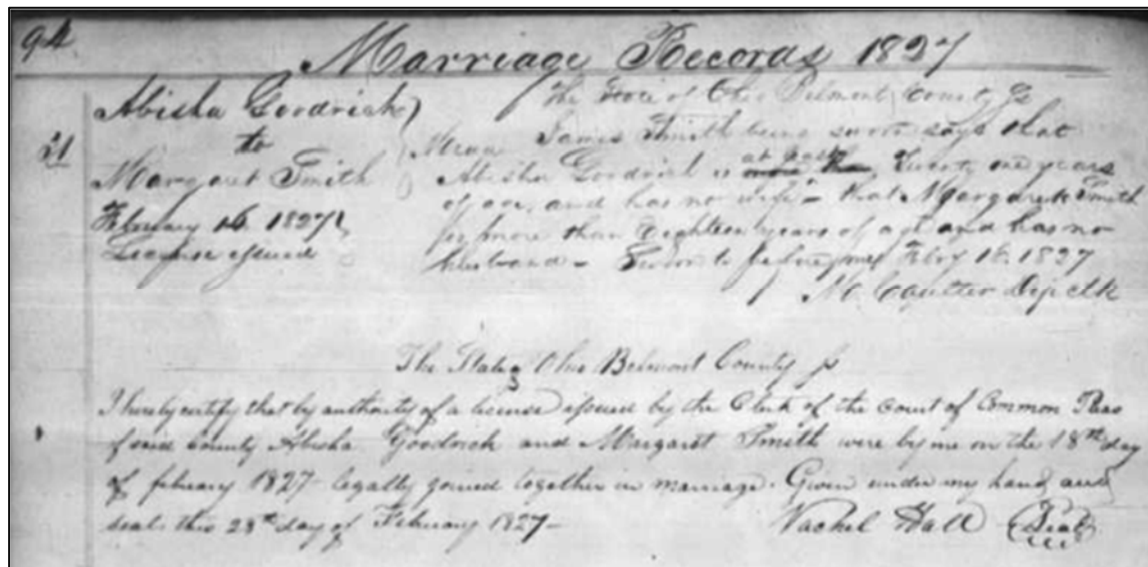 94
Marriage Records 1827
Abisha Goodrich
to
Margaret Smith
February 16 1827
License issued
21
The State of Ohio Belmont County Ss
James Smith being sworn says that
Abisha Goodrich is at least Twenty one years
of age, and has no wife – that Margaret Smith
is more than Eighteen years of age and has no
husband – Sworn to before me Feby 16. 1827
M. Coulter Dep clk
The State of Ohio Belmont County ss
I hereby certify that by authority of a license issued by the Clerk of the Court of Common Pleas
of said County Abisha Goodrich and Margaret Smith were by me on the 18th day
of february 1827 legally joined together in marriage. Given under my hand and
seal this 28th day of February 1827 –
Vachel Hall Seal